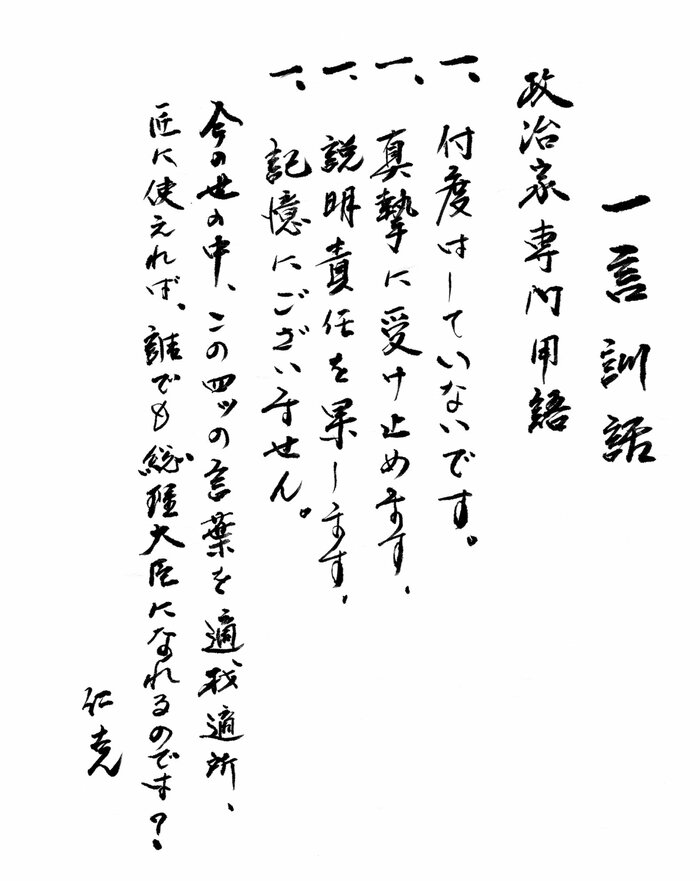 一言訓話
政治家専門用語
一、付度はしていないです。
一、真摯に受け止めます、
一、説明責任を果します、
一、記憶にございません。
今の世の中、この四ッの言葉を適材適所、
匠に使えれば、誰でも総理大臣になれるのです?